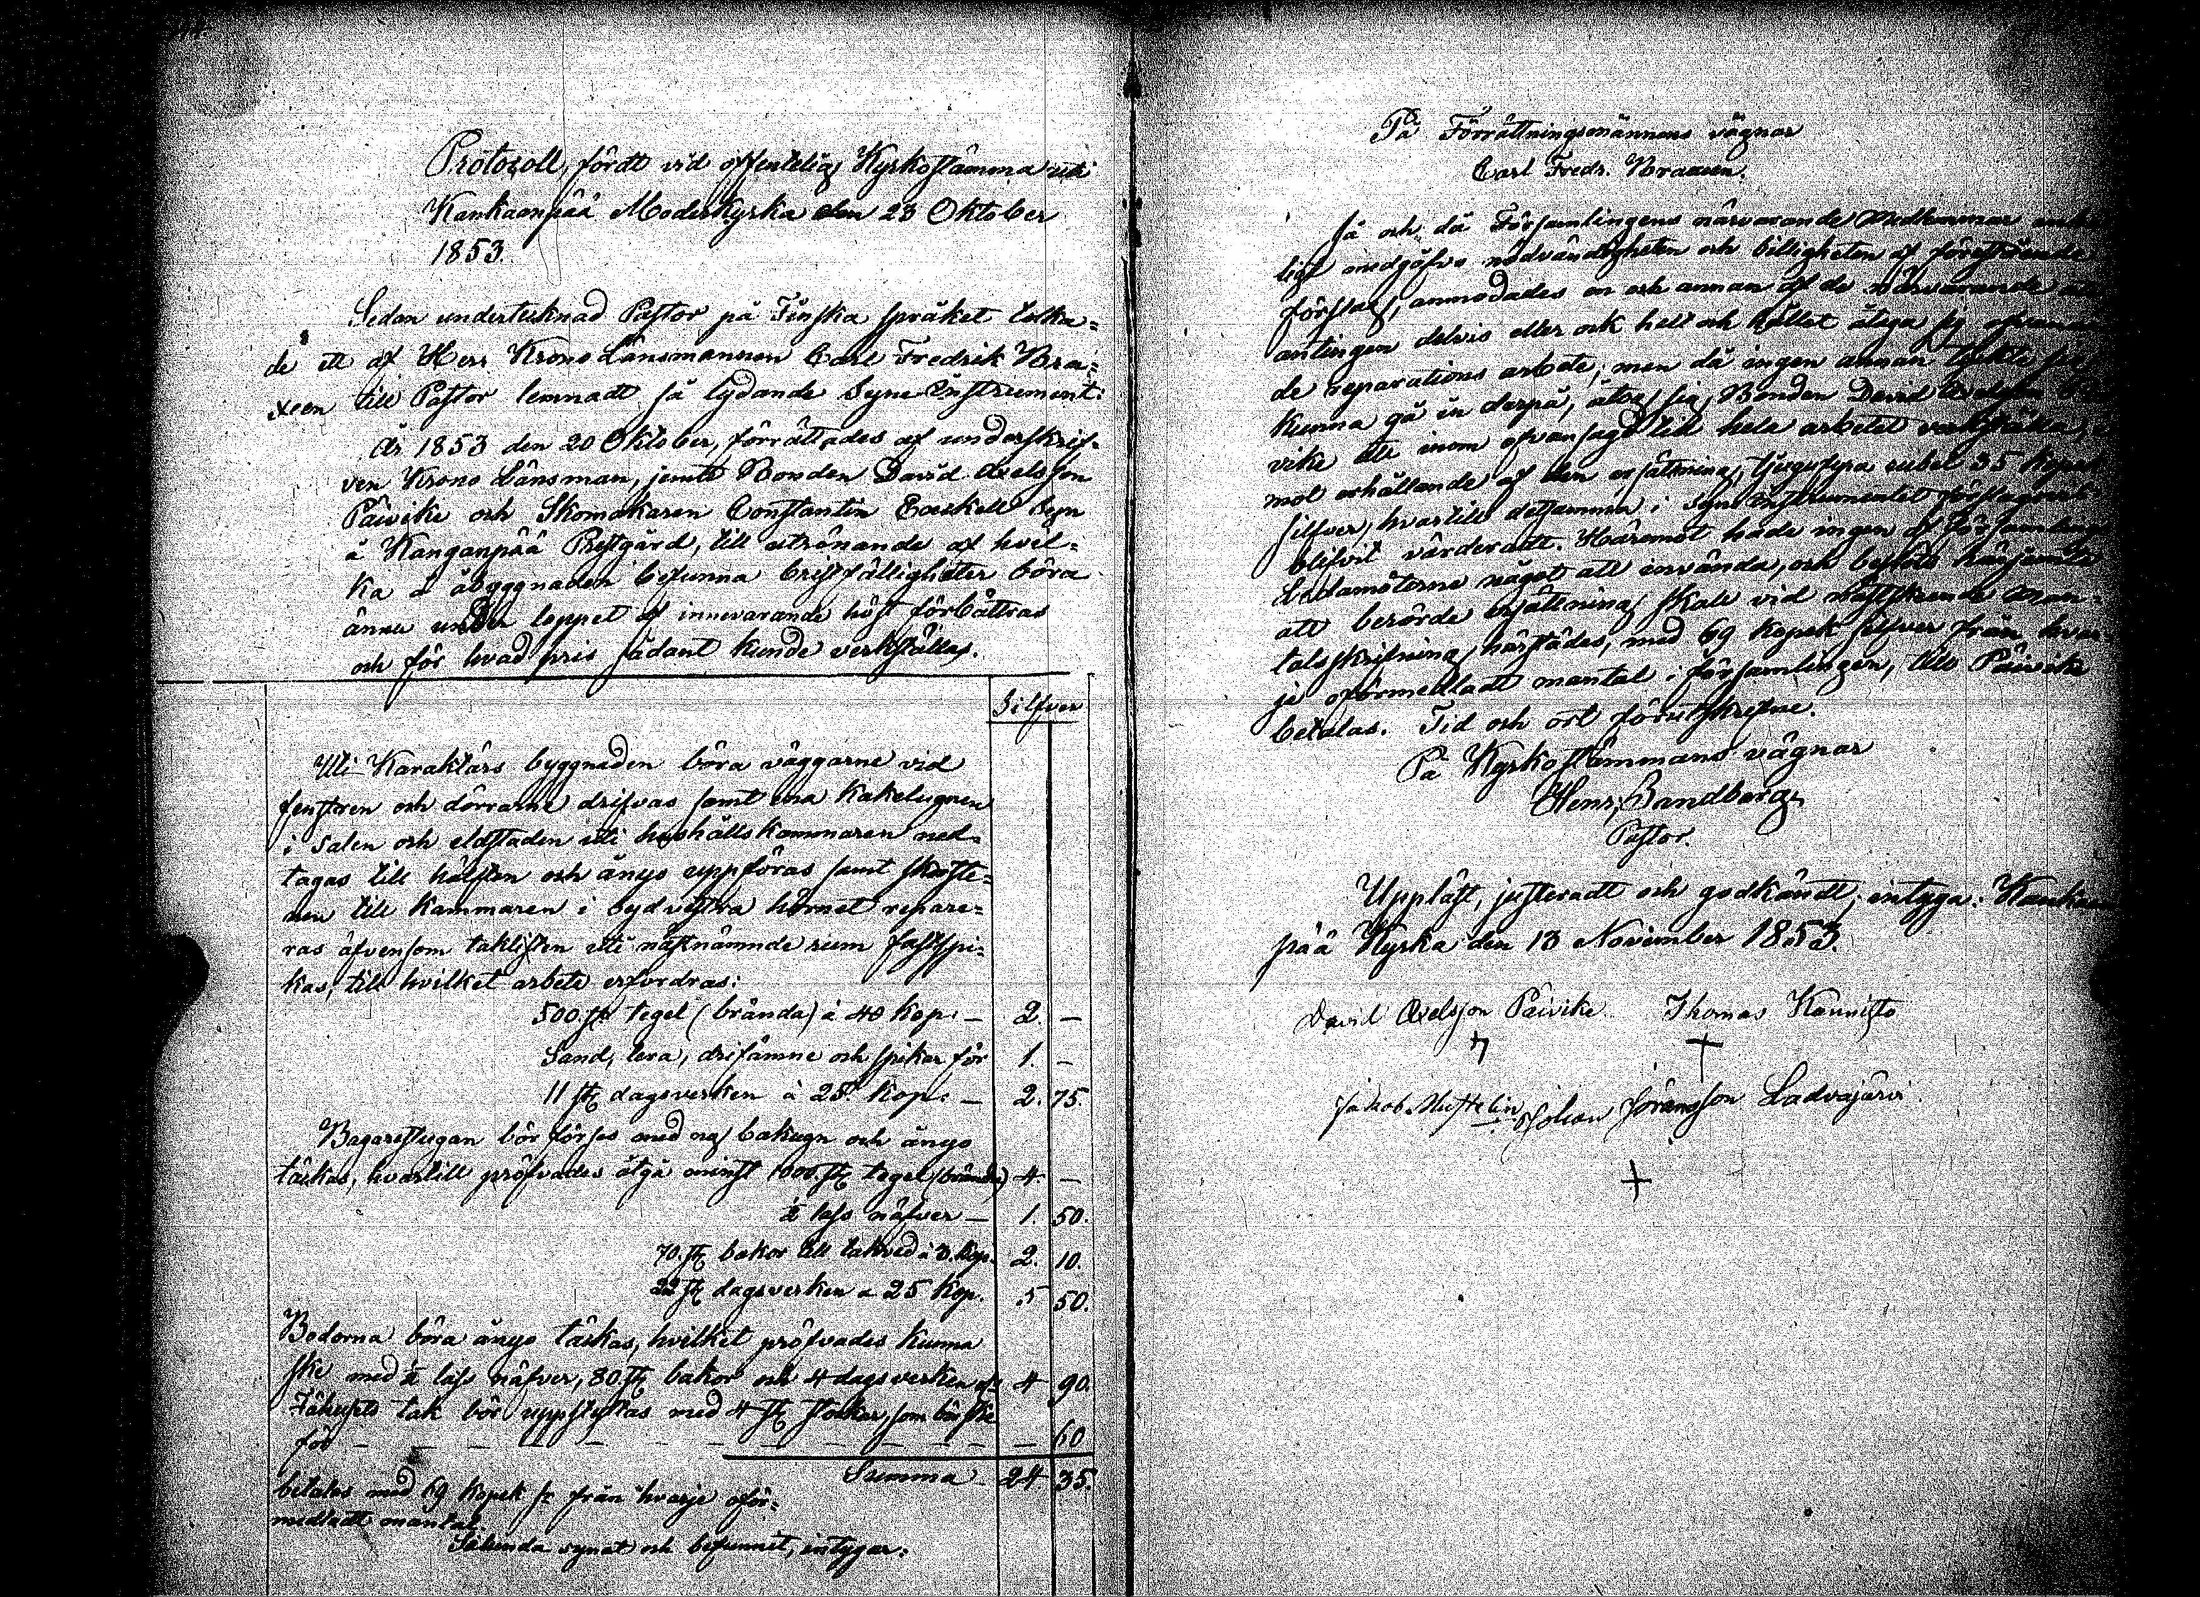 Protocoll, fördt vid offentelig Kyrkostämma uti
Kankaanpää Moderkyrka den 23 Oktober
1853.
Sedan undertecknad Pastor på Finska språket tolka-
de ett af Herr Krono Länsmannen Carl Fredrik Bra-
xeen till Pastor lemnadt så lydande Syne Instrument:
År 1853 den 20 Oktober, förrättades af underskrif-
ven Krono Länsman, jemte Bonden David Axelsson
Päivike och Skomakaren Constantin syn
å Kanganpää Prestgård, till utrönande af hvil-
ka å åbyggnaden befunna bristfälligheter böra
ännu under loppet af innevarande höst förbättras
och för hvad pris sådant kunde verkställas.
Silfver
Uti Karaktärs byggnaden böra väggarne vid
fenstren och dörrarne drifvas samt ena kakelugnen
i Salen och eldstaden uti hushålls kammaren ned-
tagas till hälften och ånyo uppföras samt skorste-
nen till kammaren i sydvestra hörnet repare-
ras äfvensom taklisten uti nästnämnde rum fastspi-
kas, till hvilket arbete erfordras:
500 st. tegel (brända) à 40 kop. — 2. —
Sand, lera, drifämne och spikar för 1. —
11 st. dagsverken à 25 kop. — 2. 75.
Bagarestugan bör förses med ny bakugn och ånyo
täckas, hvartill pröfvades åtgå minst 1000 st. tegel (brända) 4. —
½ lass näfver — 1. 50.
70 st. bakor till takved à 3 kop. 2. 10.
22 st. dagsverken a 25 kop. 5 50.
Bodorna böra ånyo täckas, hvilket pröfvades kunna
ske med ½ lass näfver, 80 st. bakor och 4 dagsverken 4 90.
Fähusets tak bör uppstyttas med 4 st. stockar, som bör ske
för — — — — — — — — — — 60
Summa 24. 35.
betalas med 69 kopek sr från hvarje oför-
medladt mantal.
Sålunda synat och befunnit, intygar:
På Förrättningsmännens vägnar
Carl Fredr. Braxeen.
Så och då Församlingens närvarande medlemmar
medgåfvo nödvändigheten och billigheten af förestående
förslag, anmodades en och annan af de närvarande
antingen delvis eller ock helt och hållet åtaga sig
de reparations arbete; men då ingen annan tyckte sig
kunna gå in derpå, åtog sig Bonden David Axelsson
vike att inom ofvansagd tid hela arbetet verkställa,
mot erhållande af den ersättning, tjugufyra rubel 35 kopek
silfver, hvartill detsamma i syne Instrumentet
blifvit värderadt. Häremot hade ingen af Församlings
Ledamöterne något att invända, och beslöts härjemte
att berörde ersättning skall vid nästskeende Man-
talsskrifning härstädes, med 69 kopek silfver från hvar-
je oförmedladt mantal i församlingen, till Päivike
betalas. Tid och ort förutskrefne.
På Kyrkostämmans vägnar
Henr. Sandberg
Pastor.
Uppläst, justeradt och godkändt; intyga: Kankaan
pää Kyrka den 13 November 1853.
David Axelsson Päivike Thomas Kannisto
Jakob Johan Göransson Ladvajärvi